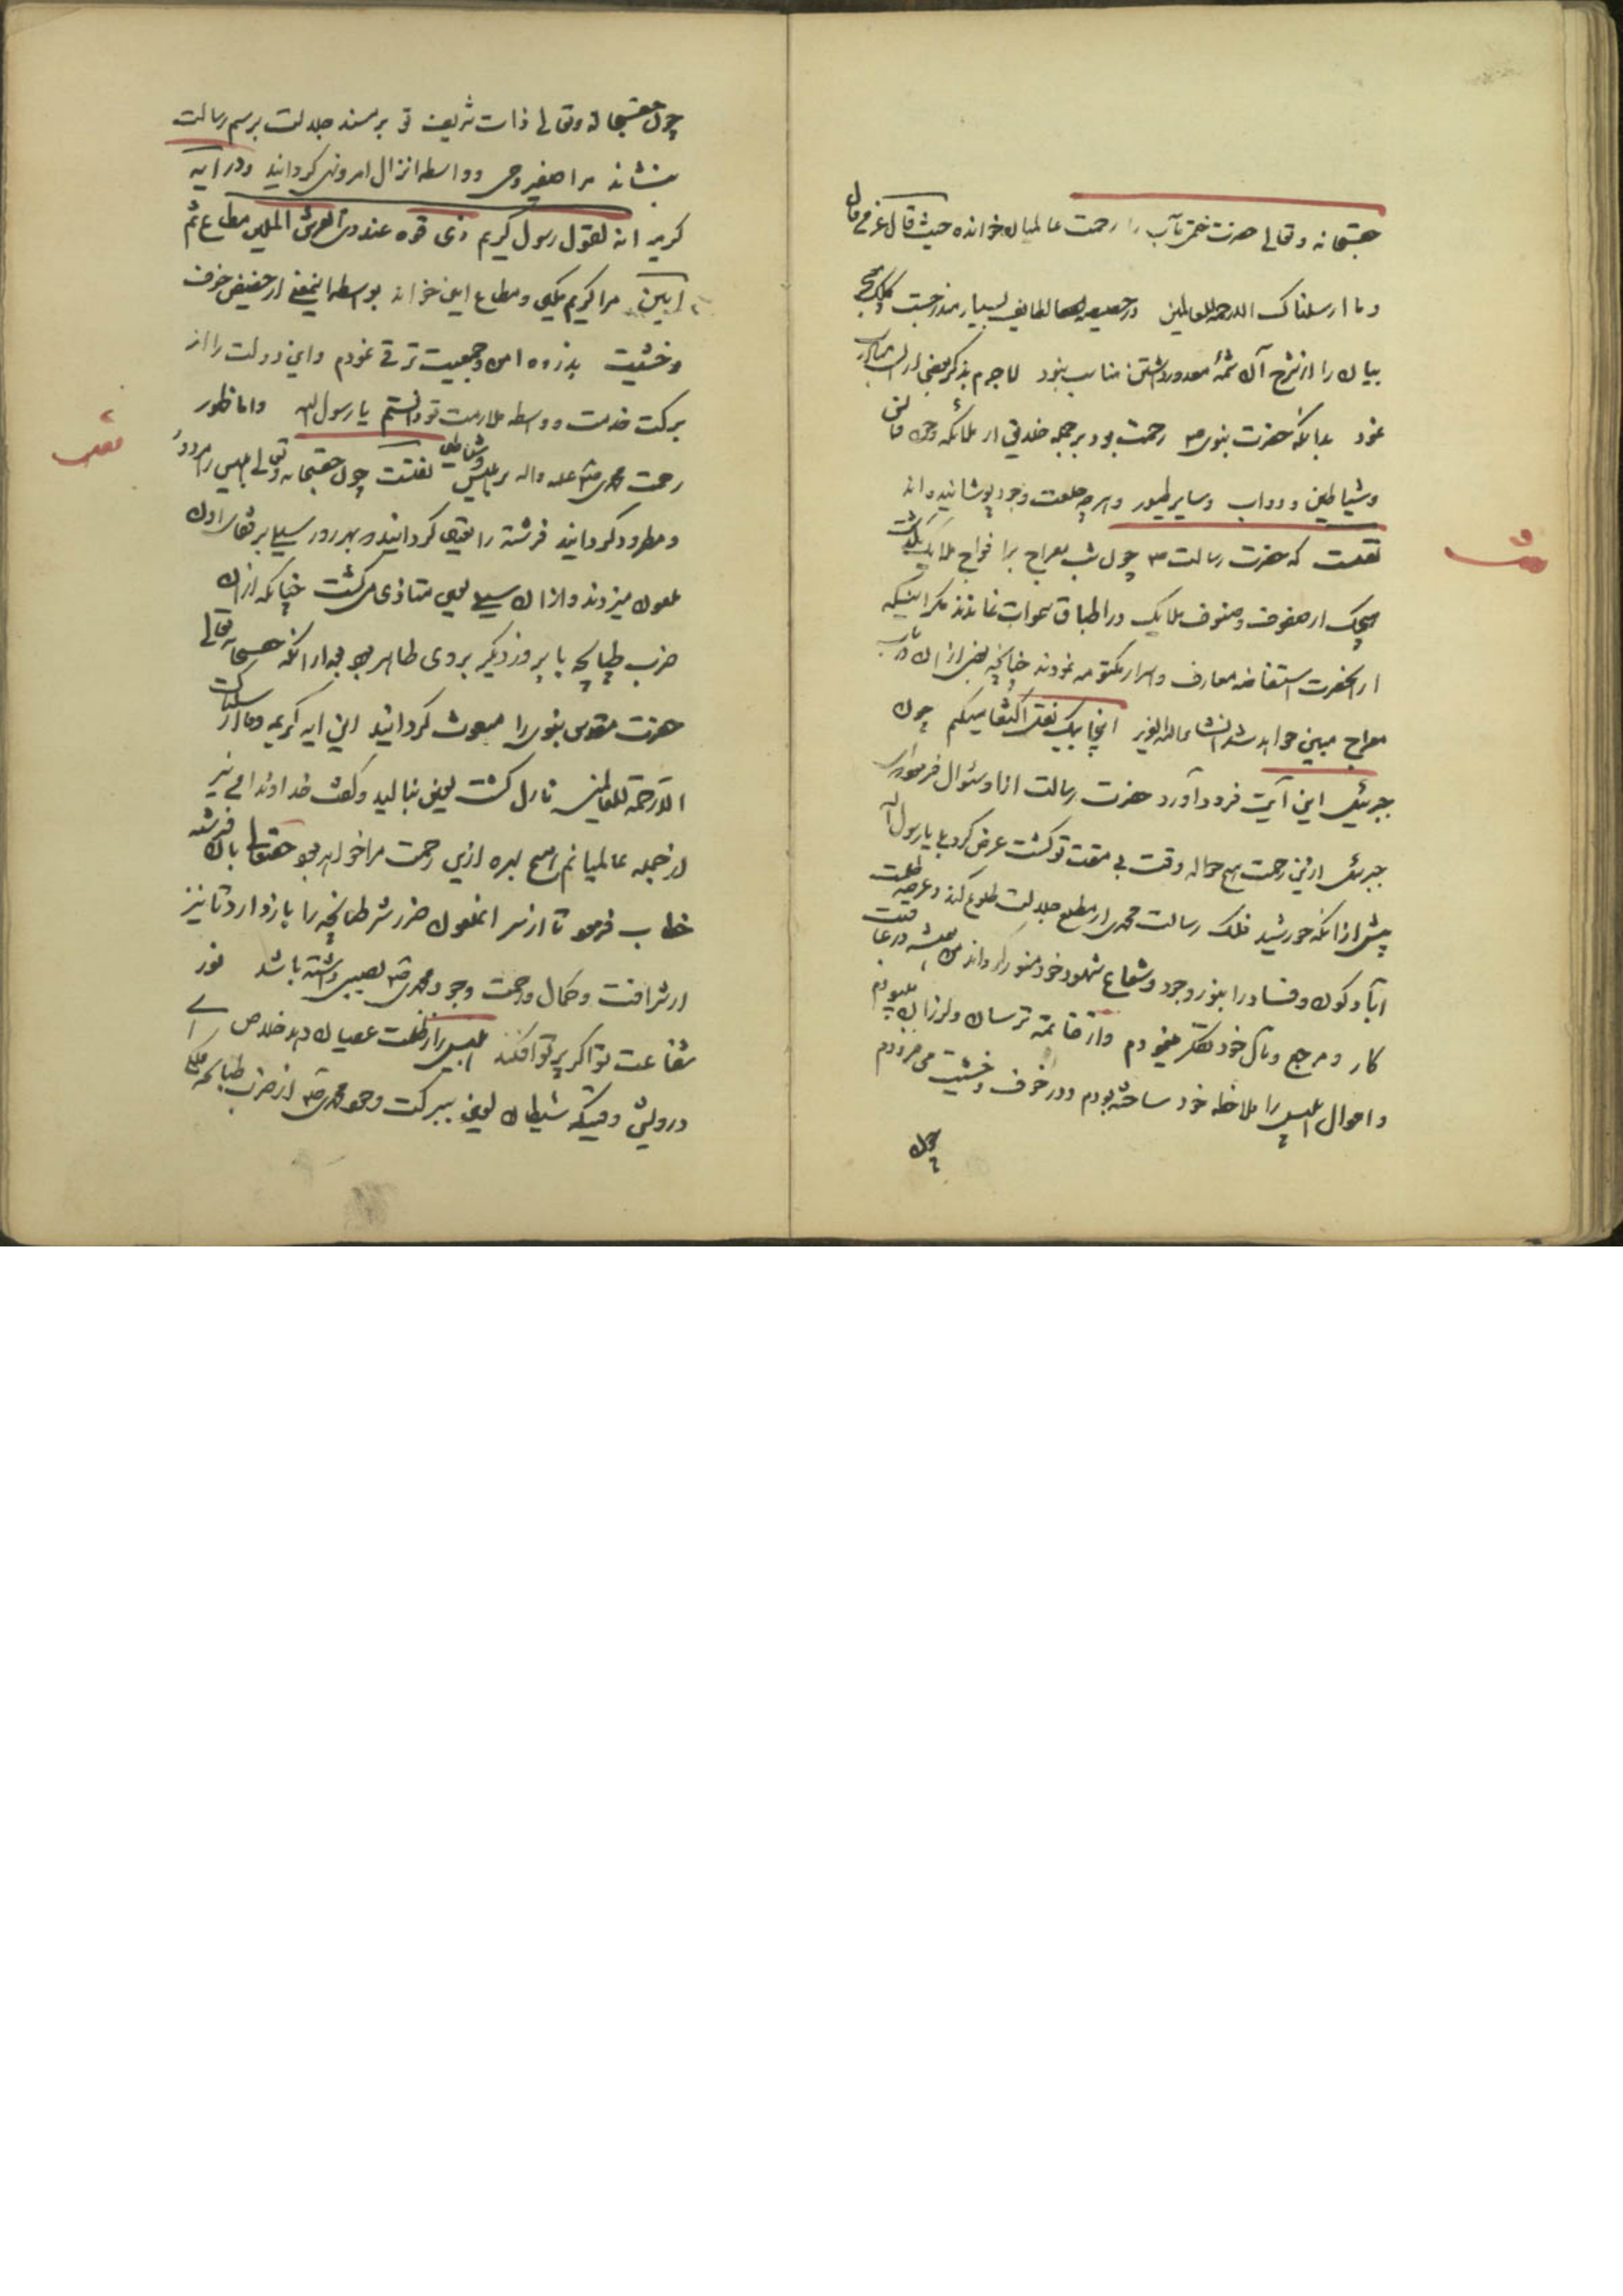 حقسبحانه وتعالی حضرت ختمی مآب را رحمت عالمیان خوانده حیث قال عز من قائل
وما ارسلناک الا رحمة للعالمین در لطایف بسیار مندرجست
بیان را از شرح آن شمهٔ معذور داشتن مناسب ننمود لاجرم بذکر بعضی از
نمود بدانکه حضرت نبوی ص رحمت بود بر جمله خلایق از ملائکه وجن وانس
وشیاطین ودواب وسایر طیور وهرچه خلعت وجود پوشانیده اند
نقلست که حضرت رسالت ص چون شب معراج بر افواج ملایک بگذشت
هیچیک از صفوف وصنوف ملایک در اطباق سموات نماندند مگر اینکه
از آنحضرت استفاضه معارف واسرار مکتومه نمودند چنانچه بعضی از آن در باب
معراج مبین خواهد شد انشاءالله العزیز اینجا بیک نقل اکتفا میکنم چون
جبرئیل این آیت فرود آورد حضرت رسالت از او سئوال فرمود که ای
جبرئیل ازین رحمت هیچ حواله وقت تو گشت عرض کرد بلی یا رسول الله
پیش از آنکه خورشید فلک رسالت محمدی از مطلع جلالت طلوع کند وعرصه ظلمت
آباد کون وفساد را بنور وجود وشعاع شهود خود منور گرداند من همیشه در عاقبت
کار ومرجع ومآل خود تفکر مینمودم واز خاتمه ترسان ولرزان میبودم
واحوال ابلیس را ملاحظه خود ساخته بودم ودر خوف وخشیت می فزودم
چون
چون حقسبحانه وتعالی ذات شریف تو بر مسند جلالت برسم رسالت
بنشاند مرا سفیر وحی وواسطه انزال امر ونهی گردانید ودر آیه
کریمه انه لقول رسول کریم ذی قوة عند ذی العرش المکین مطاع ثم
امین مرا کریم ومکین ومطاع وامین خواند بواسطه اینمعنی از حضیض خوف
وخشیت بذروه امن وجمعیت ترقی نمودم واین دولت را از
برکت خدمت وواسطه ملازمت تو دانستم یا رسول الله واما ظهور
رحمت محمدی صلی الله علیه واله بر ابلیس وشیاطین نقلست چون حقسبحانه وتعالی ابلیس را مردود
ومطرود گردانید فرشته را تعیین گردانید هر روز سیلی بر قفای آن
ملعون میزدند واز آن سیلی لعین متاذی می گشت چنانکه از آن
ضرب طپانچه تا بروز دیگر بروی ظاهر بود بعد از آنکه حقسبحانه وتعالی
حضرت مقدس نبوی را مبعوث گردانید این آیه کریمه وما ارسلناک
الا رحمة للعالمین نازل گشت لعین بنالید وگفت خداوندا من نیز
از جمله عالمیانم هیچ بهره ازین رحمت مرا خواهد بود حقتعالی بآن فرشته
خطاب فرمود تا از سر انملعون ضرر شر طپانچه را باز دارد تا نیز
از شرافت وکمال ورحمت وجود محمدی ص نصیبی داشته باشد نور
شفاعت تو اگر پرتو افکند ابلیس را از ظلمت عصیان دهد خلاص ای
درویش وقتیکه شیطان لعین ببرکت وجود محمدی ص از ضرب طپانچه ملکی
نقلست